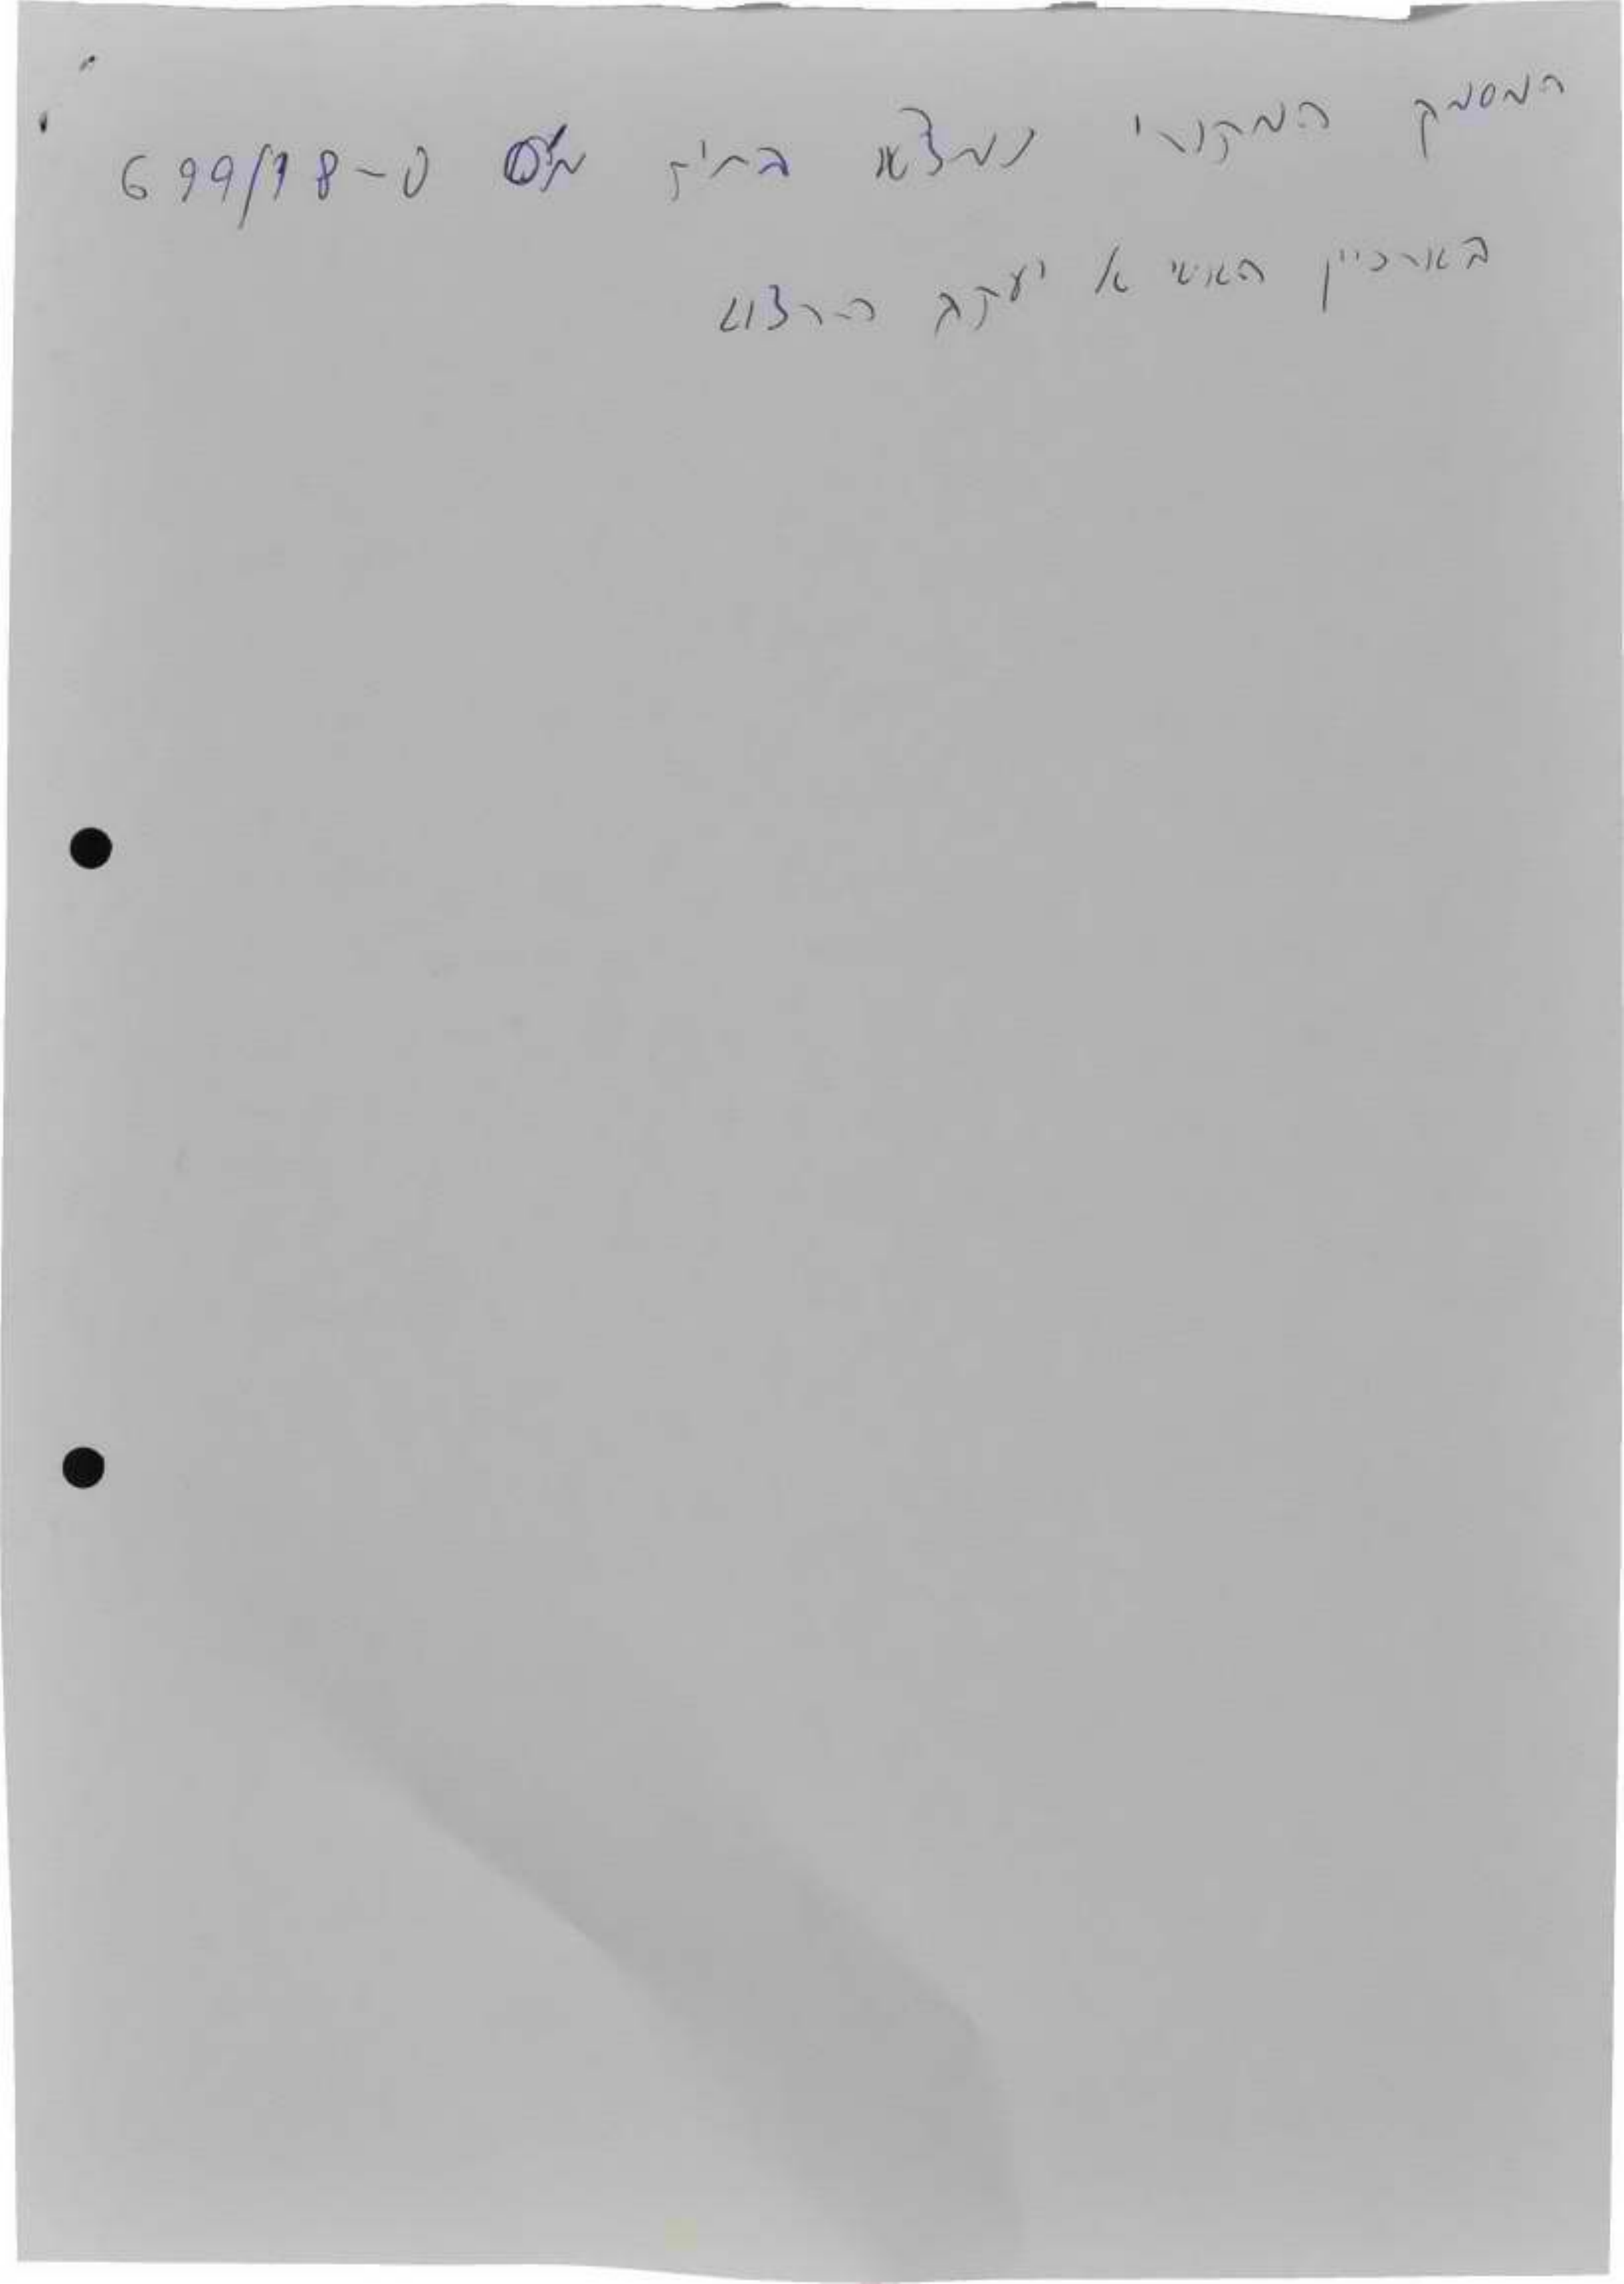 המסמך המקורי נמצא בתיק מס' 699/18-ס
בארכיון האישי של יעקב הרצוג